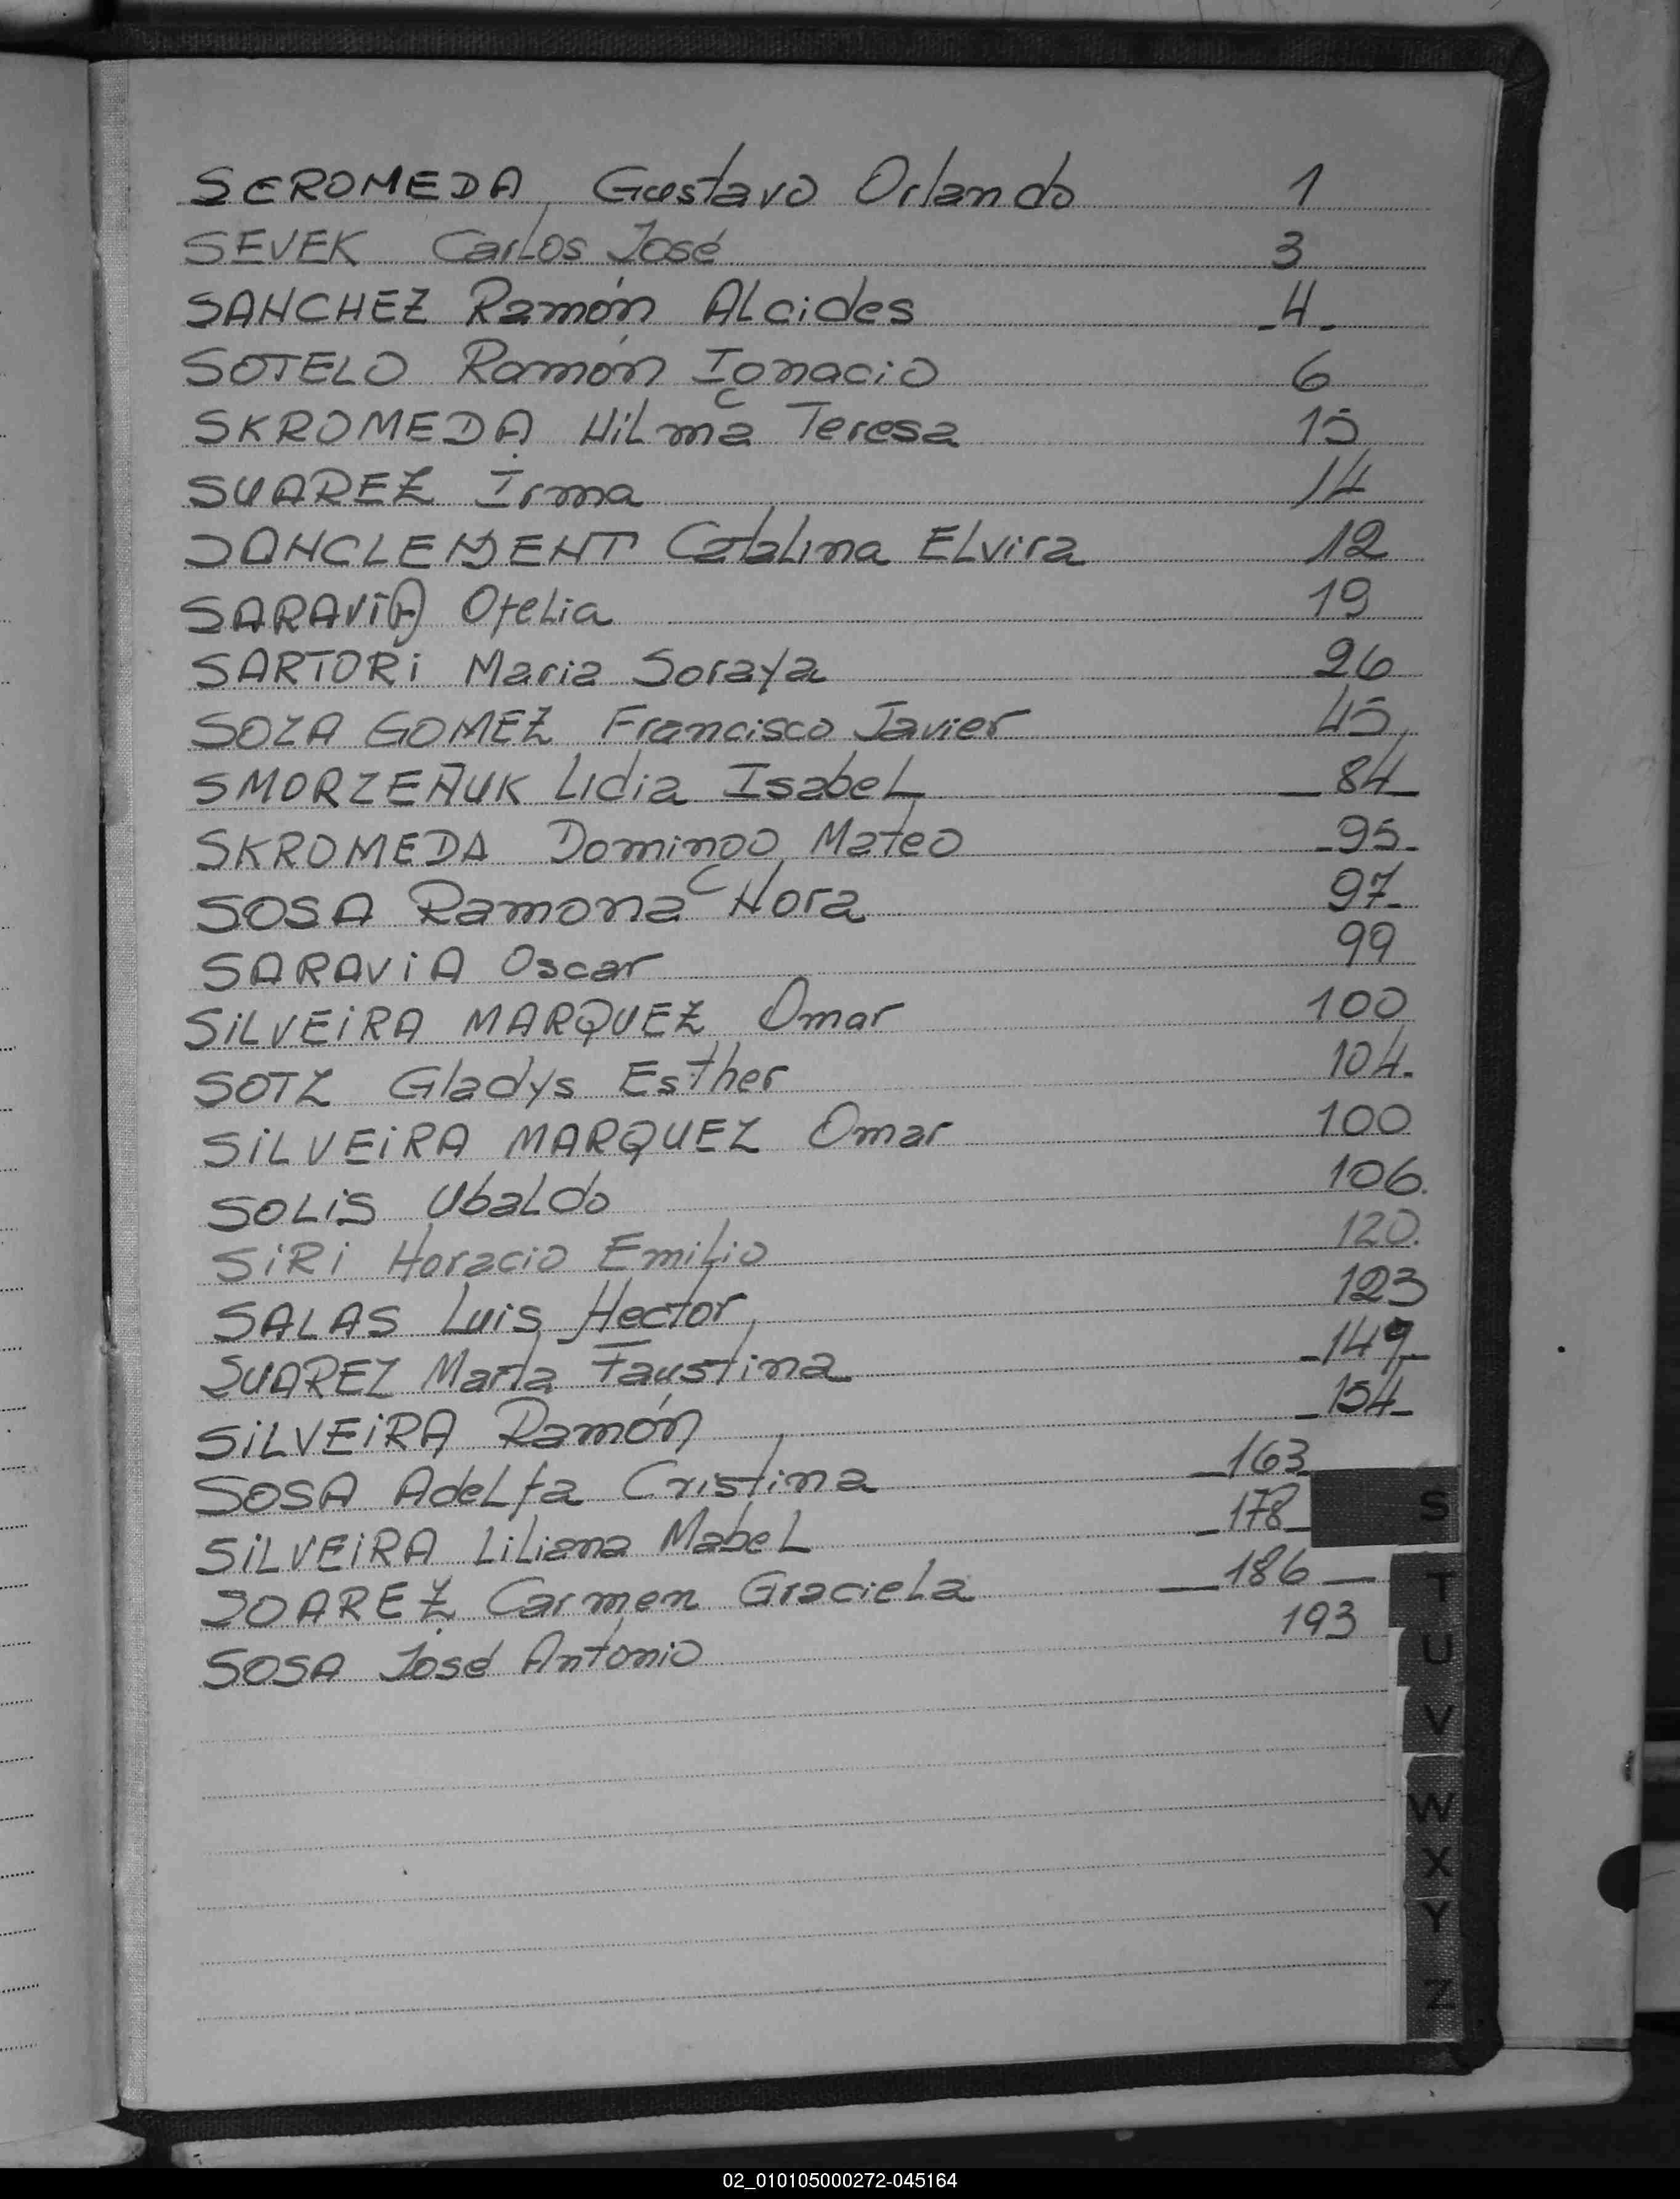 SCROMEDA, Gustavo Orlando 1
SEVEK Carlos José 3
SANCHEZ Ramón Alcides -4-
SOTELO Ramón Ignacio 6
SKROMEDA Nilma Teresa 15
SUAREZ Irma 14
SANCLEMENT Catalina Elvira 12
SARAVIA Ofelia 19
SARTORi Maria Soraya 26
SOZA GOMEZ Francisco Javier 45
SMORZEÑUK Lidia Isabel 84
SKROMEDA Domingo Mateo -95-
SOSA Ramona Nora 97-
SARAViA Oscar 99
SiLVEiRA MARQUEZ Omar 100
SOTZ Gladys Esther 104.
SiLVEiRA MARQUEZ Omar 100
SOLiS Ubaldo 106.
SiRi Horacio Emilio 120.
SALAS Luis Hector 123
SUAREZ Marta Faustina -149-
SiLVEiRA Ramón -154-
SOSA Adelfa Cristina -163-
SiLVEiRA Liliana Mabel -178-
SOAREZ Carmen Graciela -186-
SOSA José Antonio 193
S
T
U
V
W
X
Y
Z
02_010105000272-045164